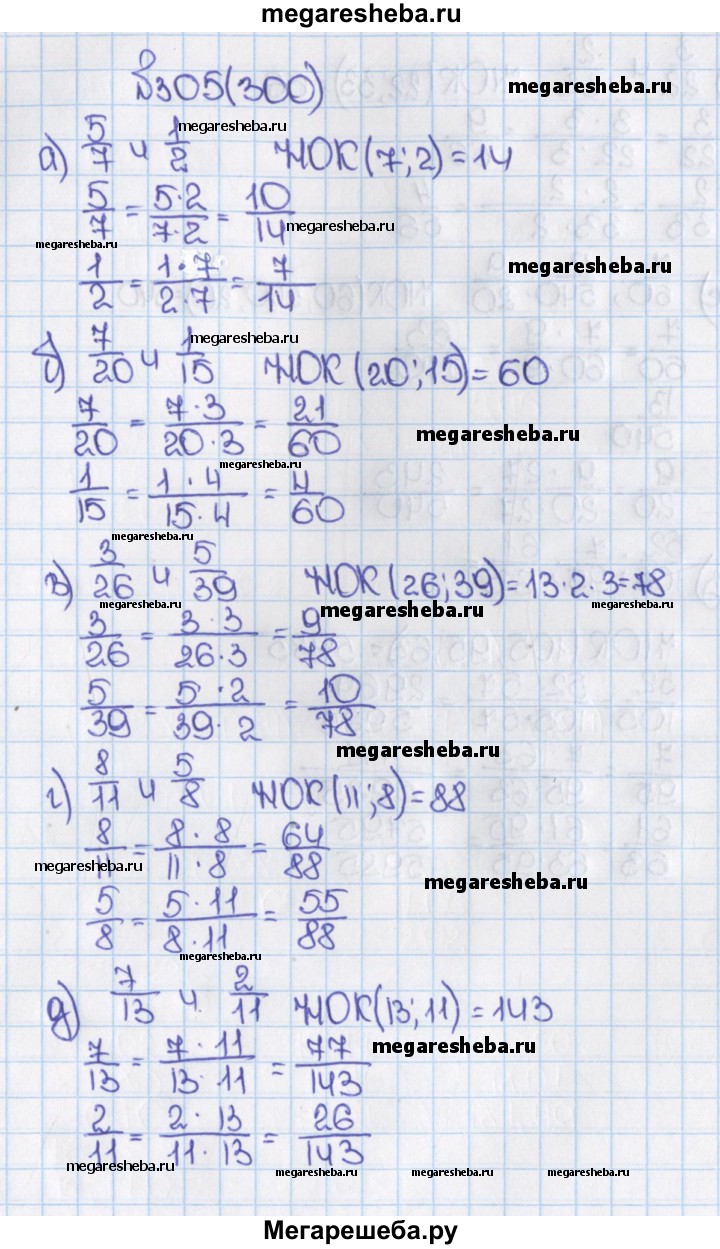 megaresheba.ru
№305(300) megaresheba.ru
а) 5/7 и 1/2 НОК(7;2)=14 megaresheba.ru
5/7 = 5·2/7·2 = 10/14 megaresheba.ru
megaresheba.ru
1/2 = 1·7/2·7 = 7/14 megaresheba.ru
б) 7/20 и 1/15 НОК(20;15)=60 megaresheba.ru
7/20 = 7·3/20·3 = 21/60 megaresheba.ru
megaresheba.ru
1/15 = 1·4/15·4 = 4/60
megaresheba.ru
в) 3/26 и 5/39 НОК(26;39)=13·2·3=78
megaresheba.ru
3/26 = 3·3/26·3 = 9/78
5/39 = 5·2/39·2 = 10/78
megaresheba.ru
г) 8/11 и 5/8 НОК(11;8)=88
8/11 = 8·8/11·8 = 64/88
megaresheba.ru megaresheba.ru
5/8 = 5·11/8·11 = 55/88
megaresheba.ru
д) 7/13 и 2/11 НОК(13;11)=143
7/13 = 7·11/13·11 = 77/143 megaresheba.ru
2/11 = 2·13/11·13 = 26/143
megaresheba.ru megaresheba.ru megaresheba.ru megaresheba.ru
Мегарешеба.ру